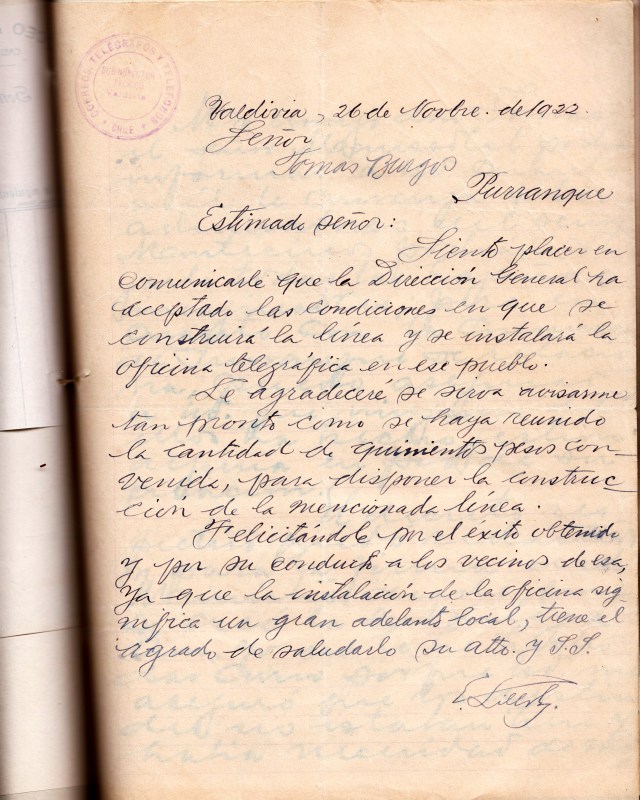 CORREOS, TELEGRAFOS Y TELEFONOS
CHILE
Valdivia, 26 de Novbre. de 1922.
Señor
Tomas Burgos
Purranque
Estimado señor:
Siento placer en
comunicarle que la Dirección General ha
aceptado las condiciones en que se
construirá la línea y se instalará la
oficina telegráfica en ese pueblo.
Le agradeceré se sirva avisarme
tan pronto como se haya reunido
la cantidad de quinientos pesos con-
venida, para disponer la construc-
ción de la mencionada línea.
Felicitándole por el éxito obtenido
y por su conducto a los vecinos de esa,
ya que la instalación de la oficina sig
nifica un gran adelanto local, tiene el
agrado de saludarlo su atto. y S.S.